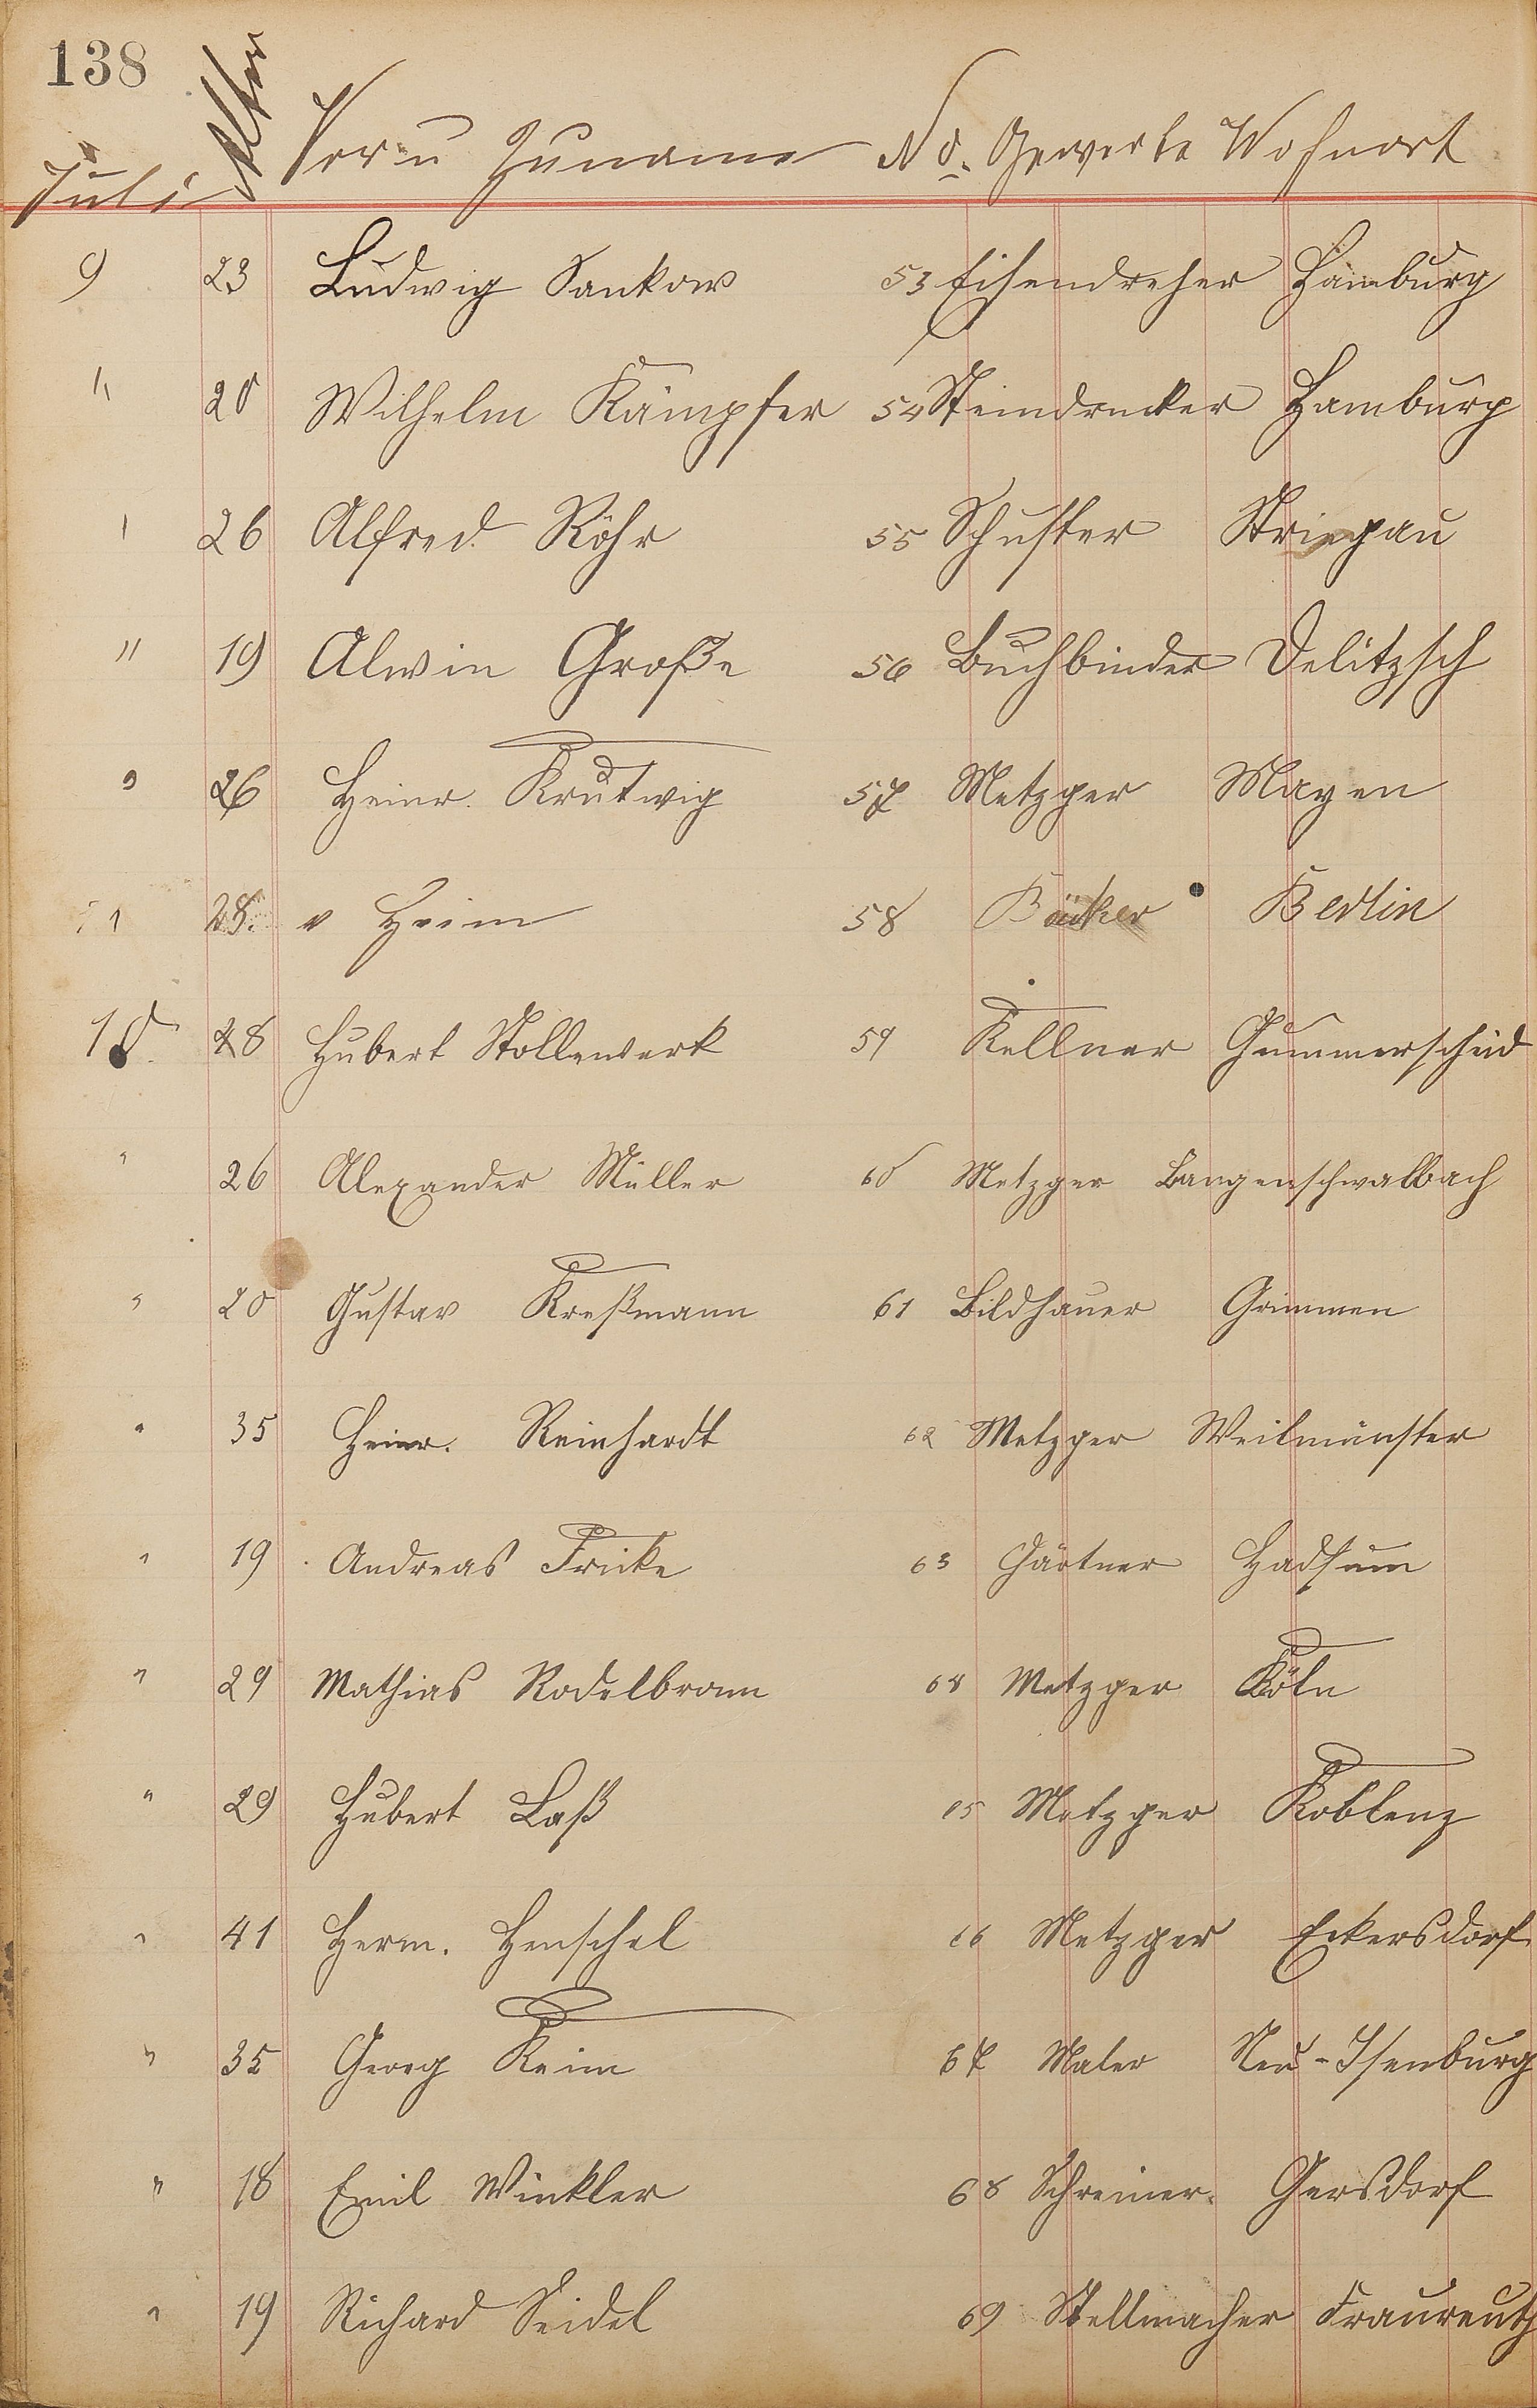 138
Juli Alter Vor u Zuname No. Gewerbe Wohnort
9 23 Ludwig Sankow 53 Eisendreher Hamburg
" 20 Wilhelm Kämpfer 54 Steindrucker Hamburg
" 26 Alfred Röhr 55 Schuster Striegau
" 19 Alwin Große 56 Buchbinder Delitzsch
" 26 Heinr. Krutwig 57 Metzger Mayen
" 28. v Heim 58 Bäcker Berlin
10. 28 Hubert Stollewerk 59 Kellner
" 26 Alexander Müller 60 Metzger Langenschwalbach
" 20 Gustav Kreßmann 61 Bildhauer Grimmen
" 35 Heinr. Reinhardt 62 Metzger Weilmünster
" 19 Andreas Fricke 63 Gärtner
" 29 Mathias 64 Metzger Köln
" 29 Hubert Laß 65 Metzger Koblenz
" 41 Herm. Henschel 66 Metzger Eckersdorf
" 35 Georg Keim 67 Maler Neu-Isenburg
" 18 Emil Winkler 68 Schreiner. Gersdorf
" 19 Richard Seidel 69 Stellmacher Fraureuth